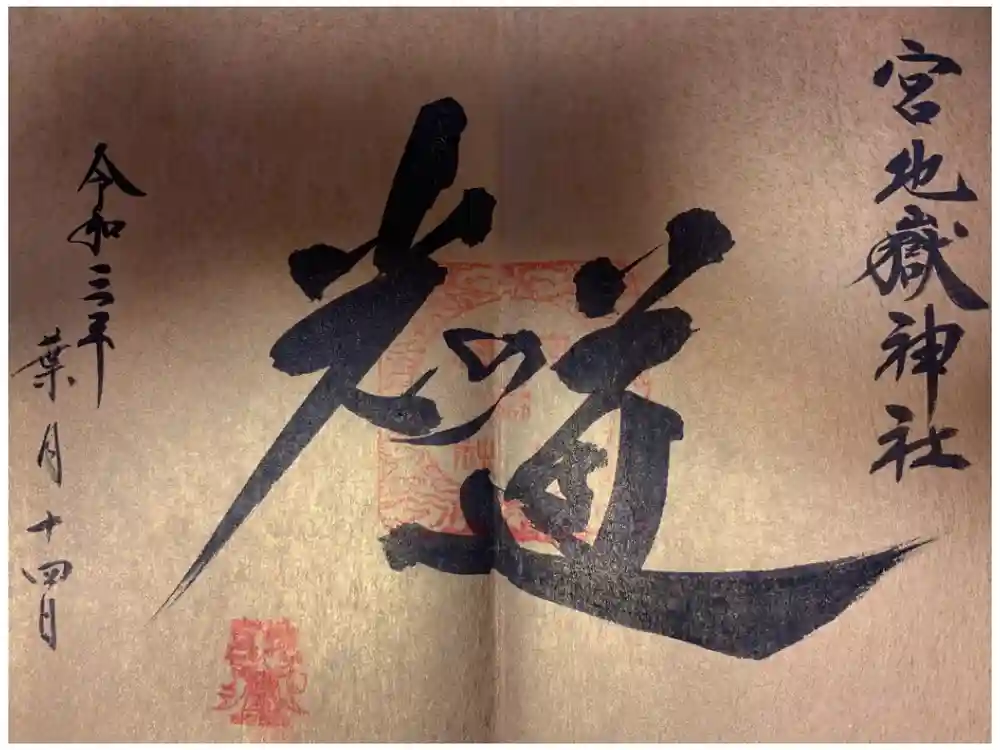 宮地嶽神社
光の道
令和三年
葉月十四日